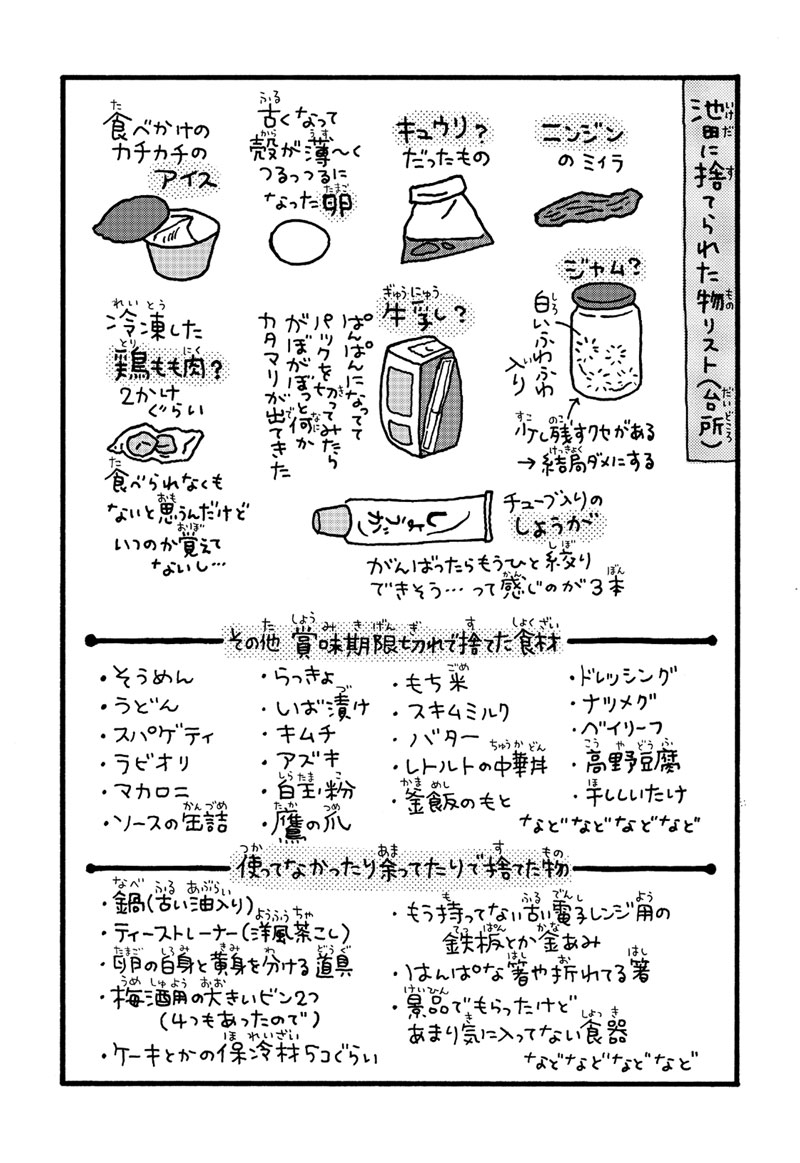 池田に捨てられた物リスト(台所)
ニンジン
のミイラ
キュウリ?
だったもの
古くなって
殻が薄〜く
つるっつるに
なった卵
食べかけの
カチカチの
アイス
ジャム?
白いふわふわ
入り
少し残すクセがある
→結局ダメにする
牛乳し?
ぱんぱんになってて
パックを切ってみたら
がぼがぼっと何か
カタマリが出てきた
冷凍した
鶏もも肉?
2かけ
ぐらい
食べられなくも
ないと思うんだけど
いつのか覚えて
ないし…
しょうが
チューブ入りの
しょうが
がんばったらもうひと絞り
できそう…って感じのが3本
その他 賞味期限切れで捨てた食材
・そうめん
・うどん
・スパゲティ
・ラビオリ
・マカロニ
・ソースの缶詰
・らっきょ
・いば漬け
・キムチ
・アズキ
・白玉粉
・鷹の爪
・もち米
・スキムミルク
・バター
・レトルトの中華丼
・釜飯のもと
・ドレッシング
・ナツメグ
・ベイリーフ
・高野豆腐
・干ししいたけ
などなどなどなど
使ってなかったり余ってたりで捨てた物
・鍋(古い油入り)
・ティーストレーナー(洋風茶こし)
・卵の白身と黄身を分ける道具
・梅酒用の大きいビン2つ
(4つもあったので)
・ケーキとかの保冷材5コぐらい
・もう持ってない古い電子レンジ用の
鉄板とか金あみ
・はんぱな箸や折れてる箸
・景品でもらったけど
あまり気に入ってない食器
などなどなどなど